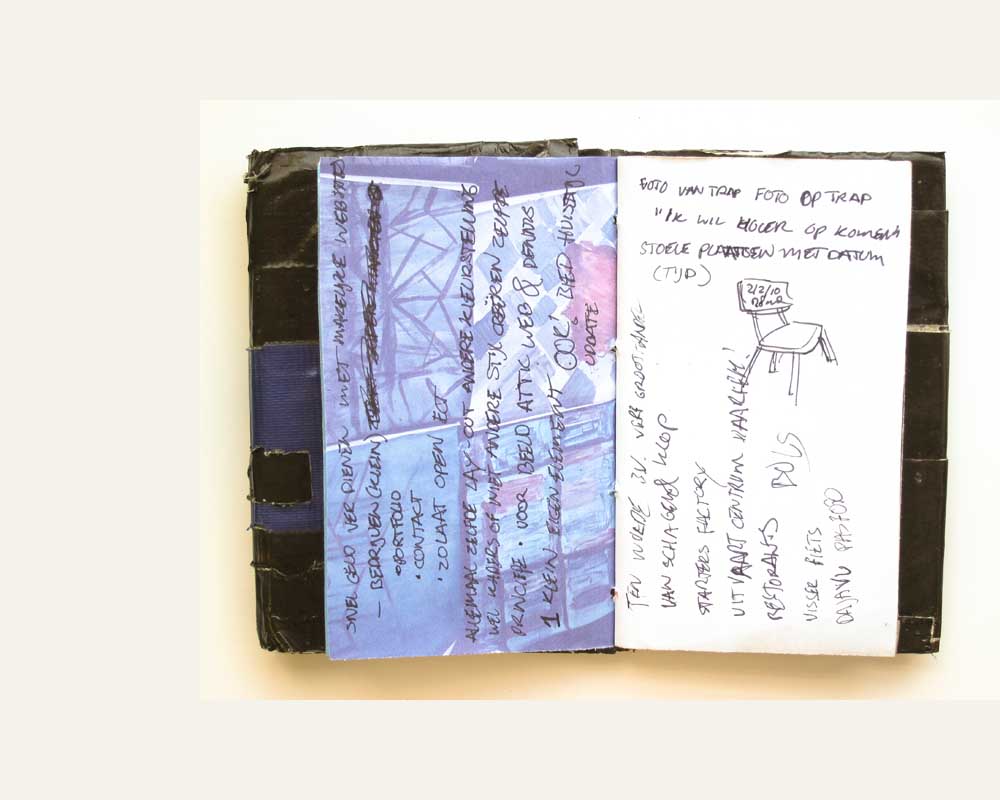 SNEL GELD VER DIENEN MET MAKELIJKE WEBSITES
— BEDRIJVEN (KLEIN)
• PORTFOLIO
• CONTACT
• ZO LAAT OPEN ECT
ALLEMAAL ZELFDE LAY-OUT ANDERE KLEURSTELLING
WEL KADERS OF NIET ANDERE STIJL ZELFDE
PRINCIPE • VOOR BEELD ATTIC WEB & DENNIS
1 KLEIN EIGEN ELEMENT OOK! BIED HUISSTIJL
UPDATE
FOTO VAN TRAP FOTO OP TRAP
"IK WIL HOGER OP KOMEN"
STOELE PLAATSEN MET DATUM
(TIJD)
2/2/10
TEN VREDE BV. VERF GROOT
VAN SCHAGEN KLOP
STARTERS FACTORY
UITVAART CENTRUM HAARLEM!
RESTORANTS
BOLS
VISSER FIETS
DAJAVU